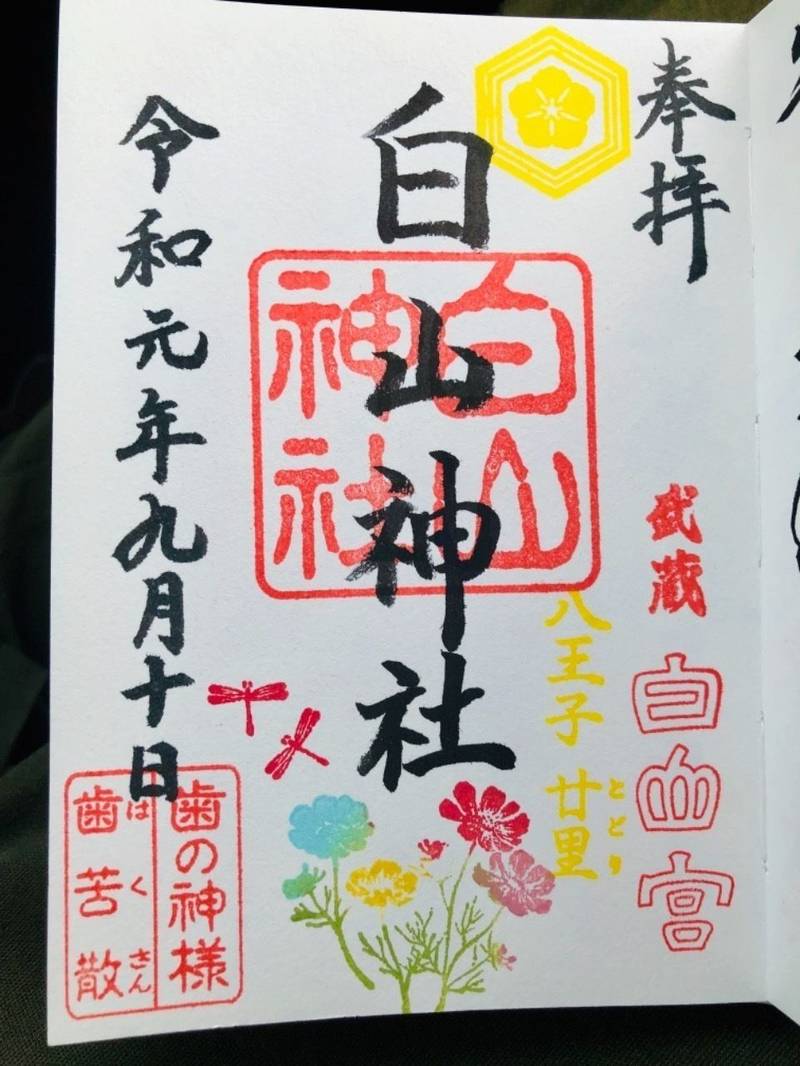 奉拝
武蔵
白山宮
八王子 廿里
ととり
白山神社
白山
神社
令和元年九月十日
歯の神様
歯苦散
はくさん